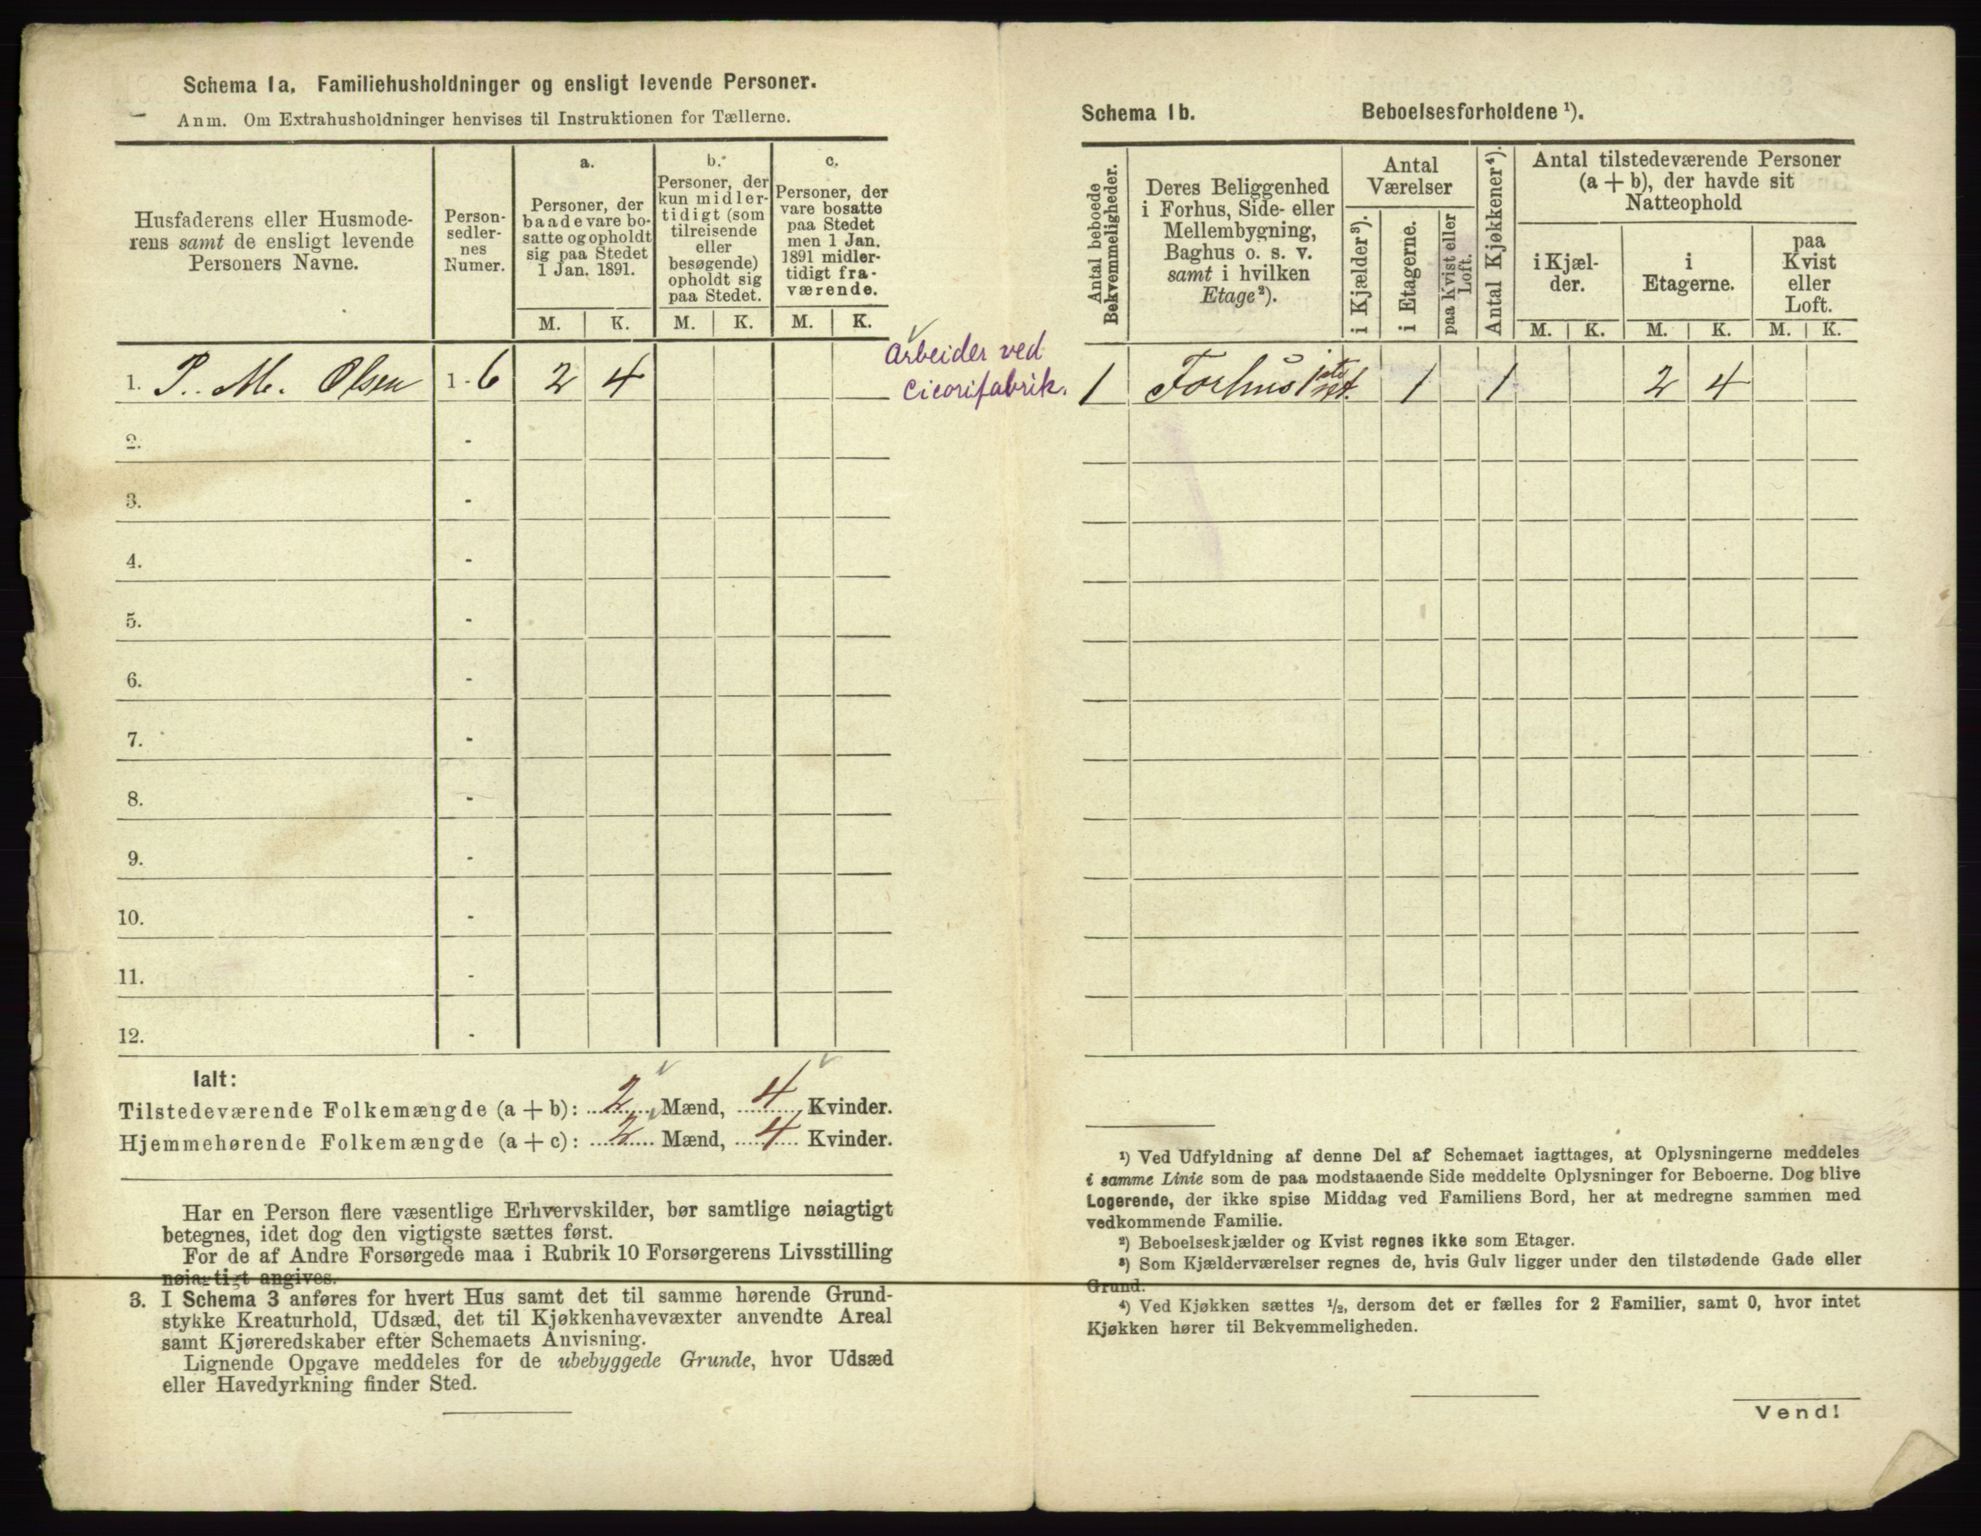 Schema 1a. Familiehusholdninger og ensligt levende Personer.
Anm. Om Extrahusholdninger henvises til Instruktionen for Tællerne.
Husfaderens eller Husmode-
rens samt de ensligt levende
Personers Navne.
Person-
sedler-
nes
Numer.
a.
Personer, der
baade vare bo-
satte og opholdt
sig paa Stedet
1 Jan. 1891.
b.
Personer, der
kun midler-
tidigt (som
tilreisende
eller
besøgende)
opholdt sig
paa Stedet.
c.
Personer, der
vare bosatte
paa Stedet
men 1 Jan.
1891 midler-
tidigt fra-
værende.
M. K. M. K. M. K.
1. P. M. Olsen 1-6 2 4
Arbeider ved
Cicorifabrik.
2. -
3. -
4. -
5. -
6. -
7. -
8. -
9. -
10. -
11. -
12. -
Ialt:
Tilstedeværende Folkemængde (a + b): 2 Mænd, 4 Kvinder.
Hjemmehørende Folkemængde (a + c): 2 Mænd, 4 Kvinder.
Har en Person flere væsentlige Erhvervskilder, bør samtlige nøiagtigt
betegnes, idet dog den vigtigste sættes først.
For de af Andre Forsørgede maa i Rubrik 10 Forsørgerens Livsstilling
nøiagtigt angives.
3. I Schema 3 anføres for hvert Hus samt det til samme hørende Grund-
stykke Kreaturhold, Udsæd, det til Kjøkkenhavevæxter anvendte Areal
samt Kjøreredskaber efter Schemaets Anvisning.
Lignende Opgave meddeles for de ubebyggede Grunde, hvor Udsæd
eller Havedyrkning finder Sted.
Schema 1b. Beboelsesforholdene ¹).
Antal beboede
Bekvemmeligheder.
Deres Beliggenhed
i Forhus, Side- eller
Mellembygning,
Baghus o. s. v.
samt i hvilken
Etage²).
Antal
Værelser
i Kjælder³).
i Etagerne.
paa Kvist eller
Loft.
Antal Kjøkkener⁴).
Antal tilstedeværende Personer
(a + b), der havde sit
Natteophold
i Kjæl-
der.
i
Etagerne.
paa
Kvist
eller
Loft.
M. K. M. K. M. K.
1 Forhus 1ste et. 1 1 2 4
¹) Ved Udfyldning af denne Del af Schemaet iagttages, at Oplysningerne meddeles
i samme Linie som de paa modstaaende Side meddelte Oplysninger for Beboerne. Dog blive
Logerende, der ikke spise Middag ved Familiens Bord, her at medregne sammen med
vedkommende Familie.
²) Beboelseskjælder og Kvist regnes ikke som Etager.
³) Som Kjælderværelser regnes de, hvis Gulv ligger under den tilstødende Gade eller
Grund.
⁴) Ved Kjøkken sættes ½, dersom det er fælles for 2 Familier, samt 0, hvor intet
Kjøkken hører til Bekvemmeligheden.
Vend!